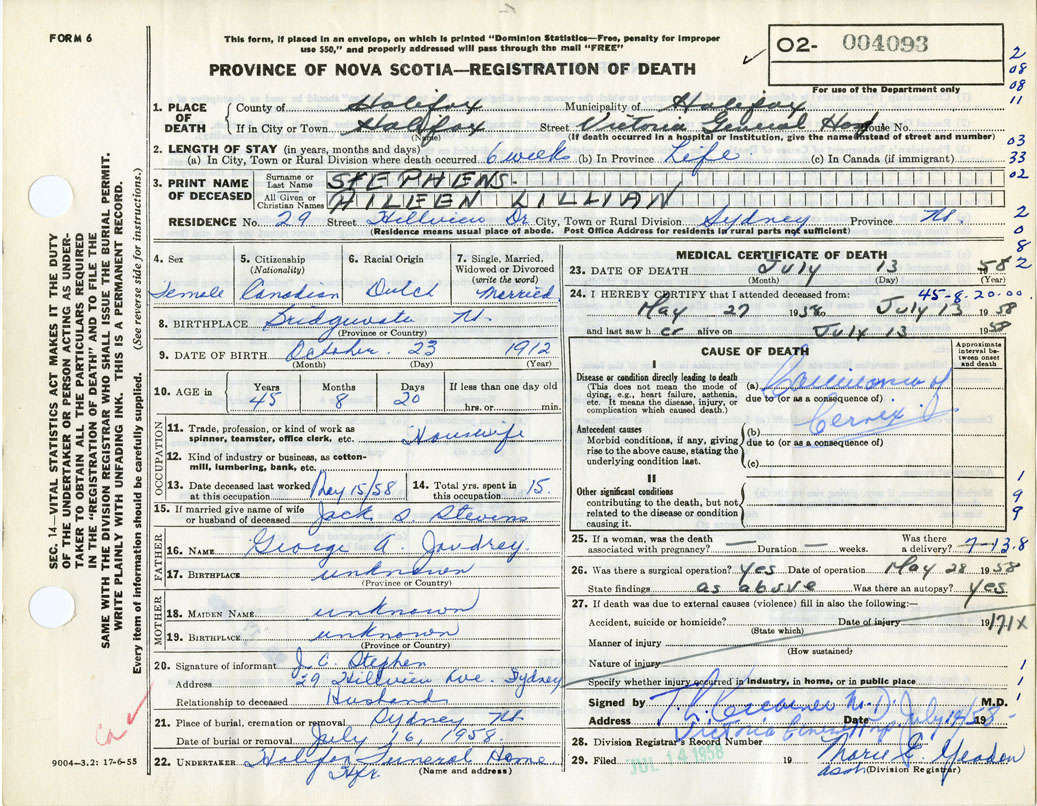 FORM 6
This form, if placed in an envelope, on which is printed "Dominion Statistics—Free, penalty for improper
use $50," and properly addressed will pass through the mail "FREE"
02- 004093
PROVINCE OF NOVA SCOTIA—REGISTRATION OF DEATH
For use of the Department only
2
08
08
11
03
33
02
2
0
8
2
1. PLACE OF DEATH { County of Halifax Municipality of Halifax
If in City or Town Halifax Street Victoria General Hosp House No.
(Name) (If death occurred in hospital or Institution, give the name instead of street and number)
2. LENGTH OF STAY (in years, months and days)
(a) In City, Town or Rural Division where death occurred 6 weeks (b) In Province Life (c) In Canada (if immigrant)
3. PRINT NAME OF DECEASED { Surname or Last Name STEPHENS
All Given or Christian Names AILEEN LILLIAN
RESIDENCE No. 29 Street Hillview Dr. City, Town or Rural Division Sydney Province NS.
(Residence means usual place of abode. Post Office Address for residents in rural parts not sufficient)
4. Sex Female
5. Citizenship (Nationality) Canadian
6. Racial Origin Dutch
7. Single, Married, Widowed or Divorced (write the word) Married
8. BIRTHPLACE Bridgewater NS.
(Province or Country)
9. DATE OF BIRTH October 23 1912
(Month) (Day) (Year)
10. AGE in { Years 45 Months 8 Days 20 If less than one day old
hrs. or min.
OCCUPATION
11. Trade, profession, or kind of work as spinner, teamster, office clerk, etc. Housewife
12. Kind of industry or business, as cotton-mill, lumbering, bank, etc.
13. Date deceased last worked at this occupation May 15/58 14. Total yrs. spent in this occupation 15.
15. If married give name of wife or husband of deceased Jack S. Stevens
FATHER
16. NAME George A. Joudrey
17. BIRTHPLACE unknown
(Province or Country)
MOTHER
18. MAIDEN NAME unknown
19. BIRTHPLACE unknown
(Province or Country)
20. Signature of informant J. C. Stephen
Address 29 Hillview Ave. Sydney
Relationship to deceased Husband
21. Place of burial, cremation or removal Sydney NS
Date of burial or removal July 16, 1958
22. UNDERTAKER Halifax Funeral Home
Hfx (Name and address)
9004—3.2: 17-6-55
SEC. 14—VITAL STATISTICS ACT MAKES IT THE DUTY
OF THE UNDERTAKER OR PERSON ACTING AS UNDER-
TAKER TO OBTAIN ALL THE PARTICULARS REQUIRED
IN THE "REGISTRATION OF DEATH" AND TO FILE THE
SAME WITH THE DIVISION REGISTRAR WHO SHALL ISSUE THE BURIAL PERMIT.
WRITE PLAINLY WITH UNFADING INK. THIS IS A PERMANENT RECORD.
Every item of information should be carefully supplied. (See reverse side for instructions.)
MEDICAL CERTIFICATE OF DEATH
23. DATE OF DEATH July 13 1958
(Month) (Day) (Year)
45-8.20.00
24. I HEREBY CERTIFY that I attended deceased from:
May 27 1958 to July 13 1958
and last saw her alive on July 13 1958
CAUSE OF DEATH
Approximate interval between onset and death
I
Disease or condition directly leading to death
(This does not mean the mode of dying, e.g., heart failure, asthenia, etc. It means the disease, injury, or complication which caused death.)
(a) Carcinoma of
due to (or as a consequence of)
Cervix
Antecedent causes
Morbid conditions, if any, giving rise to the above cause, stating the underlying condition last.
(b)
due to (or as a consequence of)
(c)
II
Other significant conditions
contributing to the death, but not related to the disease or condition causing it.
1
9
9
25. If a woman, was the death associated with pregnancy? — Duration — weeks. Was there a delivery? 7-13.8
26. Was there a surgical operation? yes Date of operation May 28 1958
State findings as above Was there an autopsy? yes
27. If death was due to external causes (violence) fill in also the following:—
Accident, suicide or homicide? Date of injury 19 171X
(State which)
Manner of injury
(How sustained)
Nature of injury
Specify whether injury occurred in industry, in home, or in public place
1
1
1
Signed by M.D.
Address Victoria General Hosp Date July 14/58 19
28. Division Registrar's Record Number
29. Filed JUL 14 1958 19 Marie
(Division Registrar)